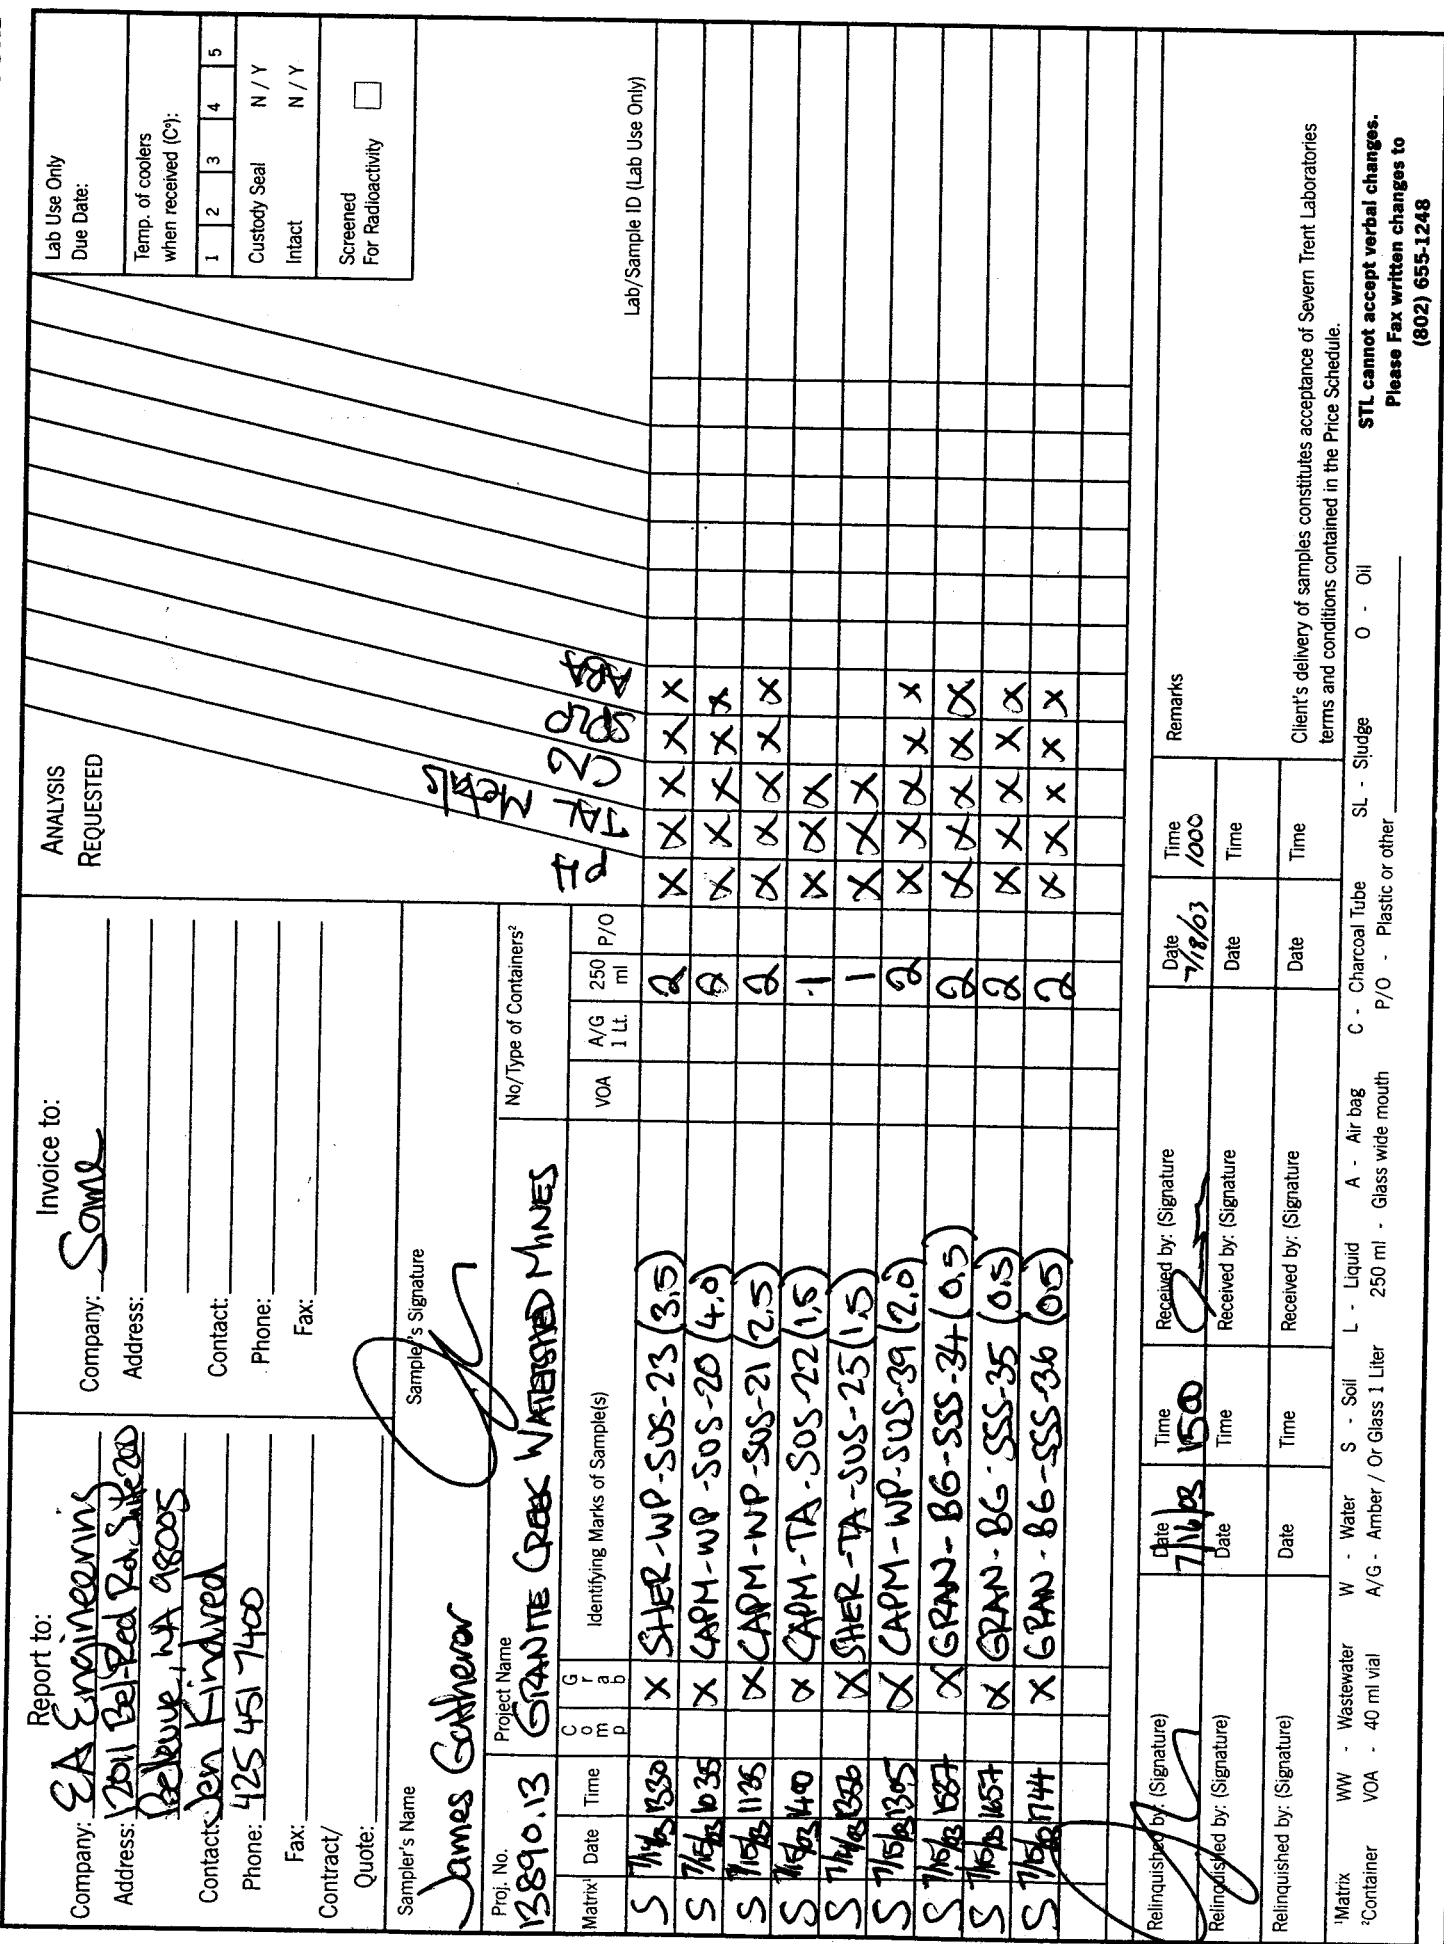 Report to:
Company: EA Engineering
Address: 12011 Bel-Red Rd. Suite 200
Bellevue, WA 98005
Contact: Jen Kindred
Phone: 425 451 7400
Fax:
Contract/
Quote:
Invoice to:
Company: Same
Address:
Contact:
Phone:
Fax:
ANALYSIS
REQUESTED
Lab Use Only
Due Date:
Temp. of coolers
when received (C°):
1 2 3 4 5
Custody Seal N / Y
Intact N / Y
Screened
For Radioactivity
Sampler's Name
James
Sampler's Signature
Proj. No.
13890.13
Project Name
GRANITE CREEK WATERSHED MINES
No/Type of Containers²
Matrix¹ Date Time Comp Grab Identifying Marks of Sample(s) VOA A/G 1 Lt. 250 ml P/O
PH TAL Metals CN SPLP ABA
Lab/Sample ID (Lab Use Only)
S 7/14/03 1330 X SHER-WP-SUS-23 (3.5) 2 X X X X X
S 7/15/03 1035 X CAPM-WP-SUS-20 (4.0) 2 X X X X X
S 7/15/03 1125 X CAPM-WP-SUS-21 (2.5) 2 X X X X X
S 7/15/03 1410 X CAPM-TA-SUS-22 (1.5) 1 X X X
S 7/14/03 1356 X SHER-TA-SUS-25 (1.5) 1 X X X
S 7/15/03 1305 X CAPM-WP-SUS-39 (2.0) 2 X X X X X
S 7/15/03 1537 X GRAN-BG-SSS-34 (0.5) 2 X X X X X
S 7/15/03 1657 X GRAN-BG-SSS-35 (0.5) 2 X X X X X
S 7/15/03 1744 X GRAN-BG-SSS-36 (0.5) 2 X X X X X
Relinquished by: (Signature) Date 7/16/03 Time 1500 Received by: (Signature Date 7/18/03 Time 1000 Remarks
Relinquished by: (Signature) Date Time Received by: (Signature Date Time
Relinquished by: (Signature) Date Time Received by: (Signature Date Time
Client's delivery of samples constitutes acceptance of Severn Trent Laboratories
terms and conditions contained in the Price Schedule.
¹Matrix WW - Wastewater W - Water S - Soil L - Liquid A - Air bag C - Charcoal Tube SL - Sludge O - Oil
²Container VOA - 40 ml vial A/G - Amber / Or Glass 1 Liter 250 ml - Glass wide mouth P/O - Plastic or other
STL cannot accept verbal changes.
Please Fax written changes to
(802) 655-1248